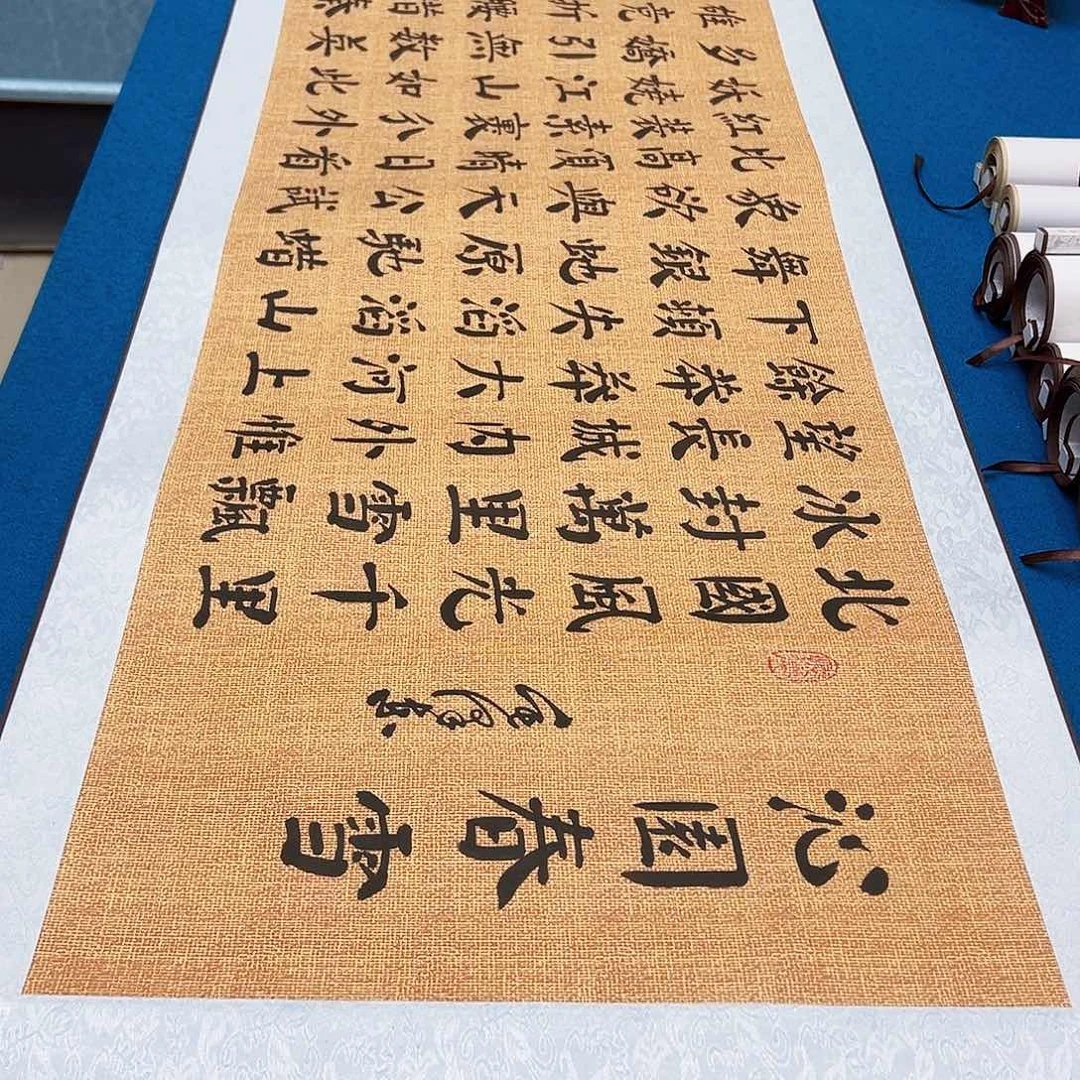 沁園春雪
北國風光千里
冰封萬里雪飄
望長城內外惟
餘莽莽大河上
下頓失滔滔山
舞銀虵原馳蜡
象欲與天公試
比高須晴日看
紅裝素裹分外
妖嬈江山如此
多嬌引無數英
雄竞折腰惜秦